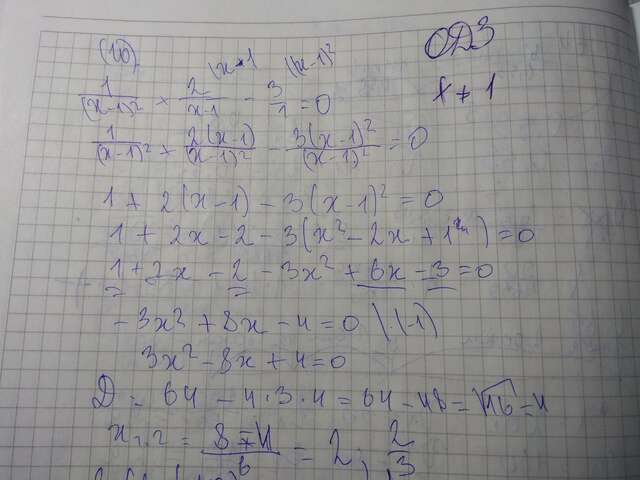 (10)
(x-1 (x-1)²
ОДЗ
1/(x-1)² + 2/x-1 - 3/1 = 0
x ≠ 1
1/(x-1)² + 2(x-1)/(x-1)² - 3(x-1)²/(x-1)² = 0
1 + 2(x-1) - 3(x-1)² = 0
1 + 2x - 2 - 3(x² - 2x + 1²) = 0
1 + 2x - 2 - 3x² + 6x - 3 = 0
-3x² + 8x - 4 = 0 |·(-1)
3x² - 8x + 4 = 0
D = 64 - 4·3·4 = 64 - 48 = √16 = 4
x₁,₂ = 8±4/6 = 2; 2/3